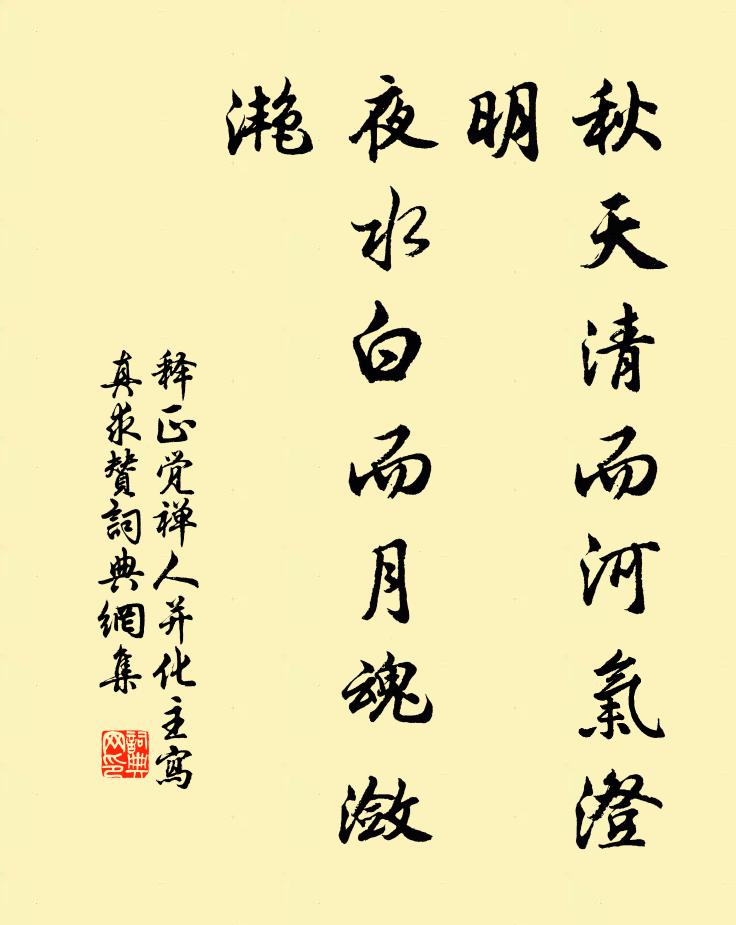 秋天清而河氣澄
明
夜水白而月魂瀲
灧
释正觉禅人并化主寫
真求贊詞典網集
詞典
网印